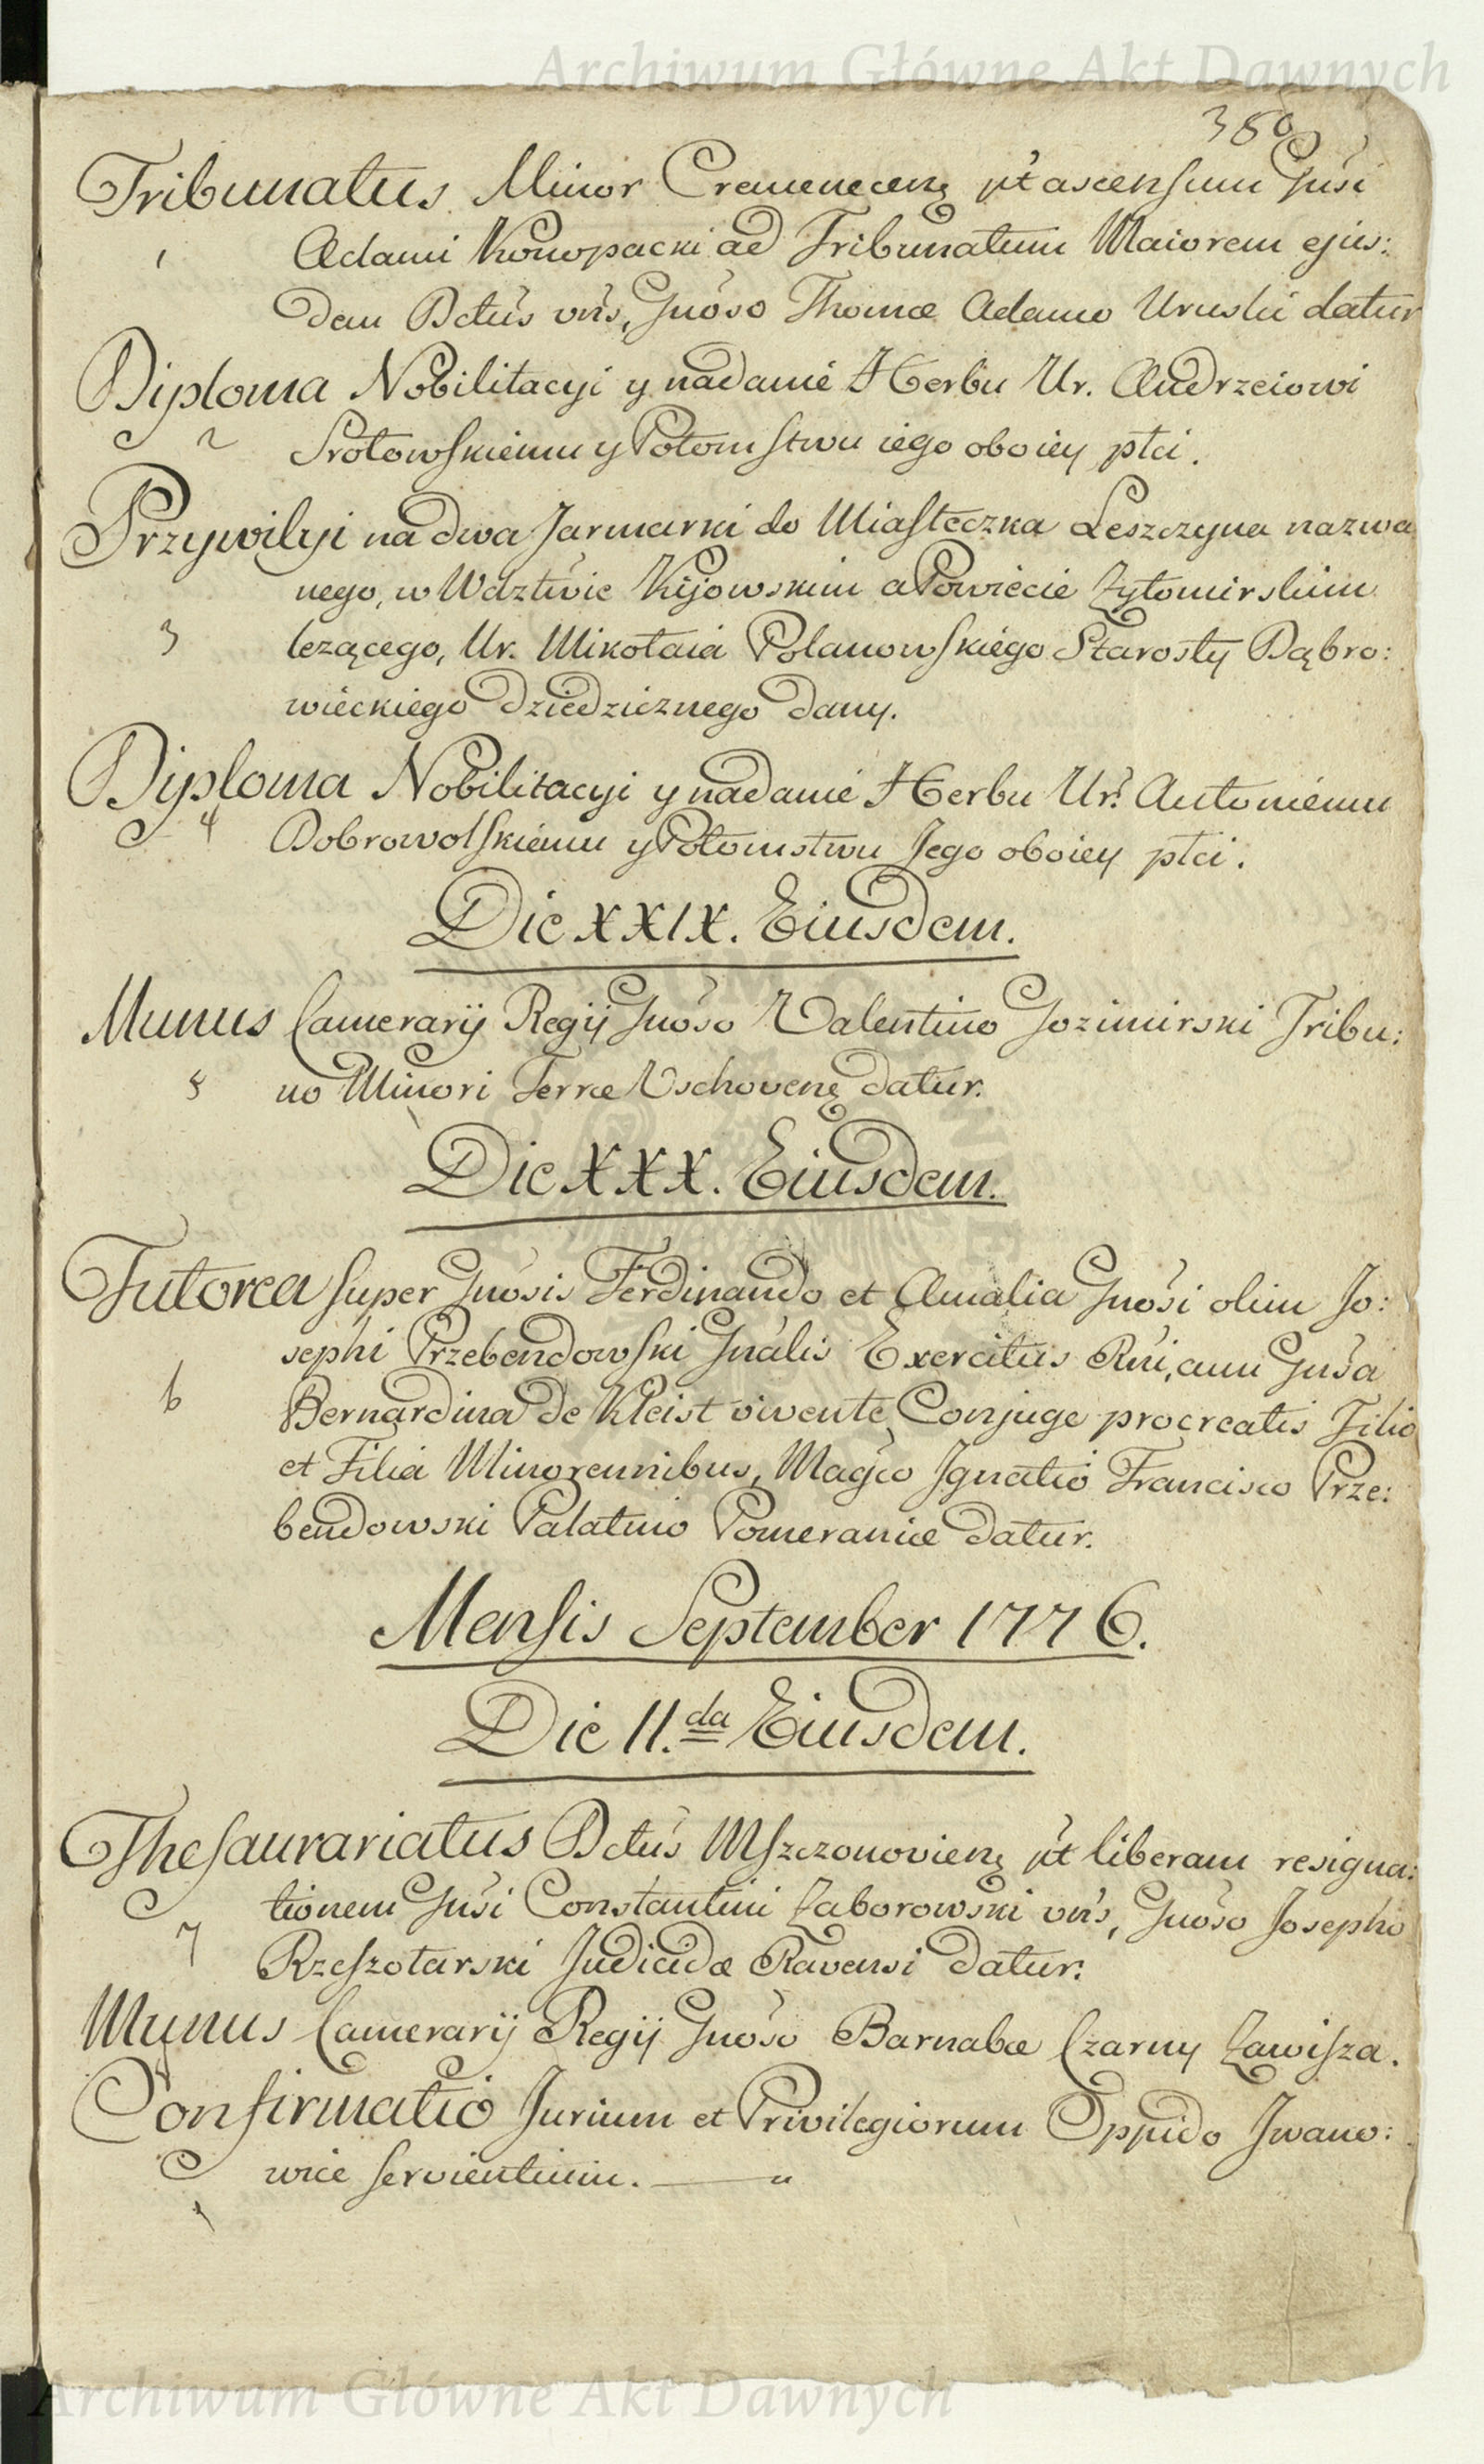 Archiwum Główne Akt Dawnych
380
Tribunatus Minor Cremenecen̄ pt ascensum Gnsi
1 Adami Konopacki ad Tribunatum Maiorem ejus:
dem Dctus vrs, Gnoso Thomæ Adamo Uruski datur
Diploma Nobilitacyi y nadanie Herbu Ur. Andrzeiowi
2 Srotowskiemu y Potomstwu iego oboiey płci.
Przywilyi na dwa Jarmarki do Miasteczka Leszczyna nazwa
nego, w Wdztwie Kijowskim a Powiecie Zytomirskim
3 lezącego, Ur. Mikołaia Polanowskiego Starosty Dąbro:
wieckiego Dziedzicznego dany.
Diploma Nobilitacyi y nadanie Herbu Ur. Antoniemu
4 Dobrowolskiemu y Potomstwu Jego oboiey płci.
Die XXIX. Eiusdem.
Munus Camerarij Regij Gnoso Valentino Gozimirski Tribu:
5 no Minori Terræ Vschoven̄ datur.
Die XXX. Eiusdem.
Tutorea super Gnosis Ferdinando et Amalia Gnosi olim Jo:
sephi Przebendowski Gnalis Exercitus Rni, cum Gnsa
6 Bernardina de Kleist vivente Conjuge procreatis Filio
et Filia Minorennibus, Magco Ignatio Francisco Prze:
bendowski Palatino Pomeraniæ datur.
Mensis September 1776.
Die II.da Eiusdem.
Thesaurariatus Dctus Mszczonovien̄ pt liberam resigna:
tionem Gnsi Constantini Zaborowski vrs, Gnoso Josepho
7 Rzeszotarski Judicidæ Ravensi datur.
Munus Camerarij Regij Gnoso Barnabæ Czarny Zawisza.
8
Confirmatio Jurium et Privilegiorum Oppido Iwano:
wice servientium.
Archiwum Główne Akt Dawnych